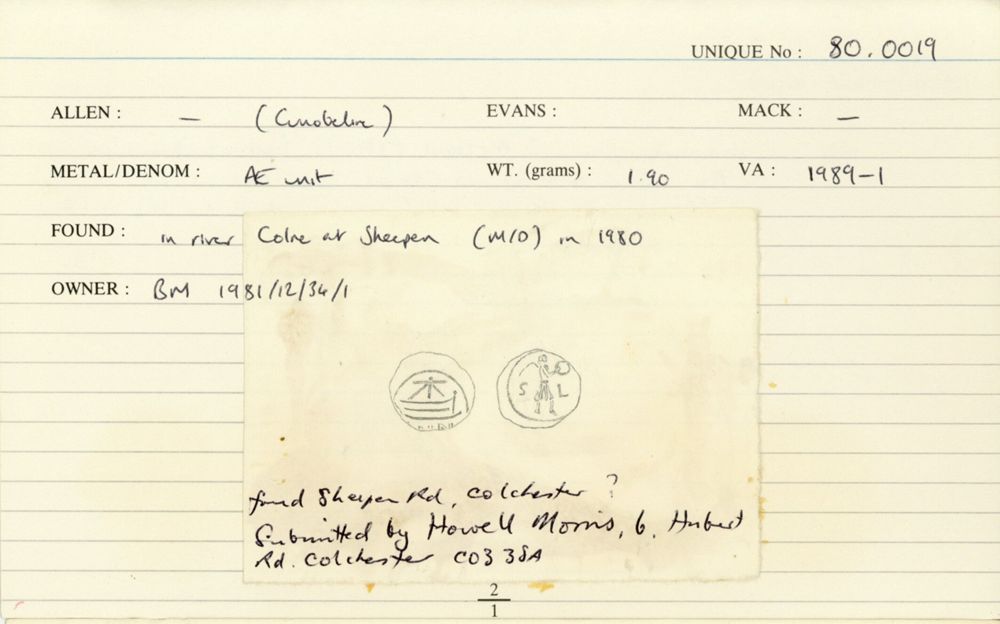 UNIQUE No : 80.0019
ALLEN : — (Cunobeline) EVANS : MACK : —
METAL/DENOM : AE unit WT. (grams) : 1.90 VA : 1989-1
FOUND : in river Colne at Sheepen (M/D) in 1980
OWNER : BM 1981/12/34/1
S L
found Sheepen Rd, Colchester ?
Submitted by Howell Morris, 6, Hubert
Rd. Colchester CO3 3SA
2
1